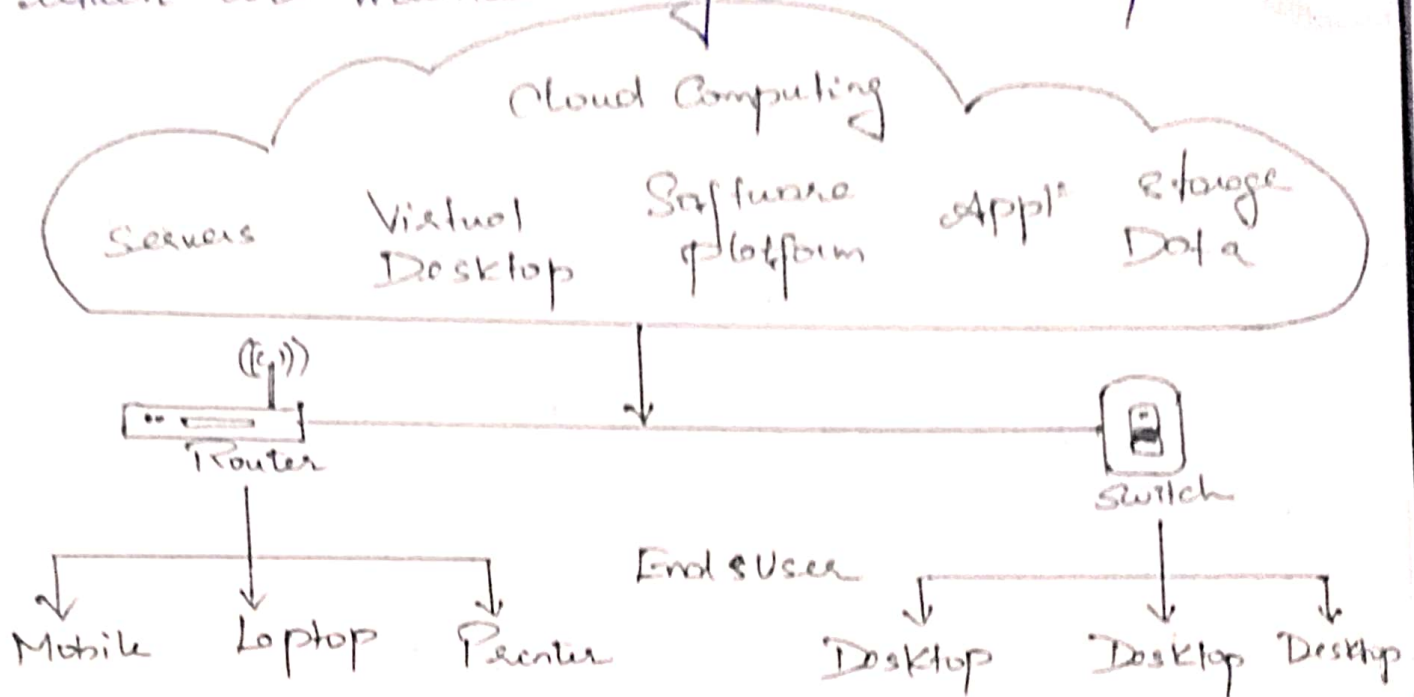 Cloud Computing
Servers
Virtual
Desktop
Software
platform
Appl
Storage
Data
Router
Switch
End & User
Mobile
Laptop
Printer
Desktop
Desktop
Desktop